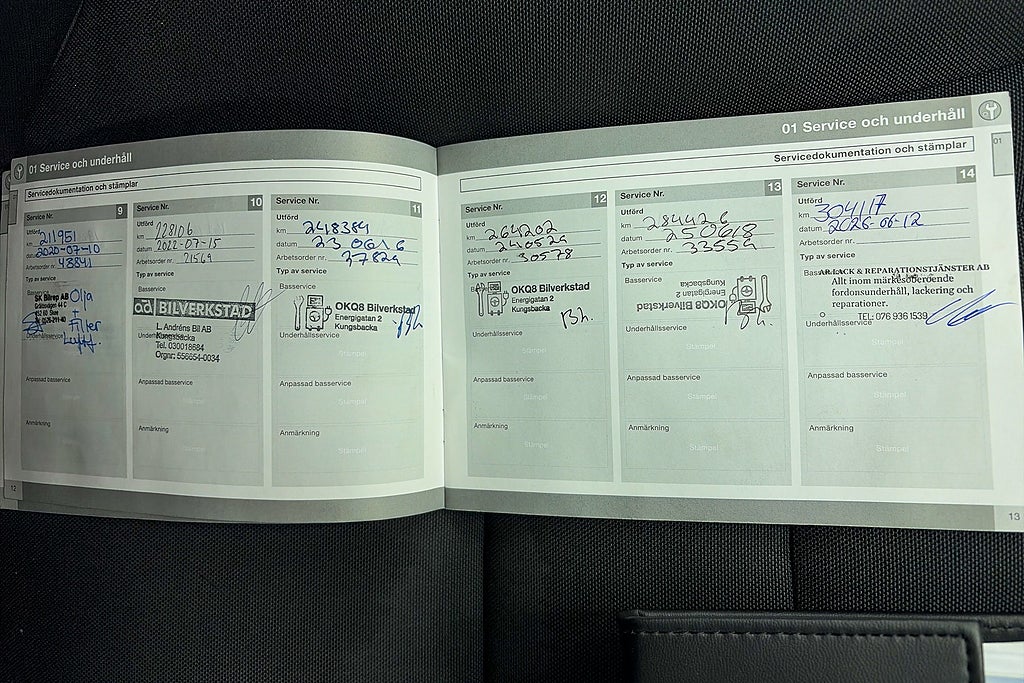 01 Service och underhåll
Servicedokumentation och stämplar
Service Nr. 9
Utförd
km 211951
datum 2020-07-10
Arbetsorder nr. 48841
Typ av service
SK Bilrep AB
Olja
+
Filter
Luft.
Underhållsservice
Anpassad basservice
Anmärkning
12
Service Nr. 10
Utförd
km 228106
datum 2022-07-15
Arbetsorder nr. 71569
Typ av service
Basservice
ad BILVERKSTAD
L. Andréns Bil AB
Kungsbacka
Tel. 030018684
Orgnr: 556654-0034
Stämpel
Anpassad basservice
Stämpel
Anmärkning
Stämpel
Service Nr. 11
Utförd
km 248384
datum 230616
Arbetsorder nr. 37829
Typ av service
Basservice
OKQ8 Bilverkstad
Energigatan 2
Kungsbacka
Underhållsservice
Stämpel
Anpassad basservice
Stämpel
Anmärkning
Stämpel
01 Service och underhåll
01
Servicedokumentation och stämplar
Service Nr. 12
Utförd
km 264202
datum 240529
Arbetsorder nr. 30578
Typ av service
OKQ8 Bilverkstad
Energigatan 2
Kungsbacka
Underhållsservice
Stämpel
Anpassad basservice
Stämpel
Anmärkning
Stämpel
Service Nr. 13
Utförd
km 284426
datum 250618
Arbetsorder nr. 33559
Typ av service
OKQ8 Bilverkstad
Energigatan 2
Kungsbacka
Underhållsservice
Stämpel
Anpassad basservice
Stämpel
Anmärkning
Stämpel
Service Nr. 14
Utförd
km 304117
datum 2026-06-12
Arbetsorder nr.
Typ av service
AR LACK & REPARATIONSTJÄNSTER AB
Allt inom märkesoberoende
fordonsunderhåll, lackering och
reparationer.
TEL: 076 936 1539
Underhållsservice
Stämpel
Anpassad basservice
Stämpel
Anmärkning
Stämpel
13